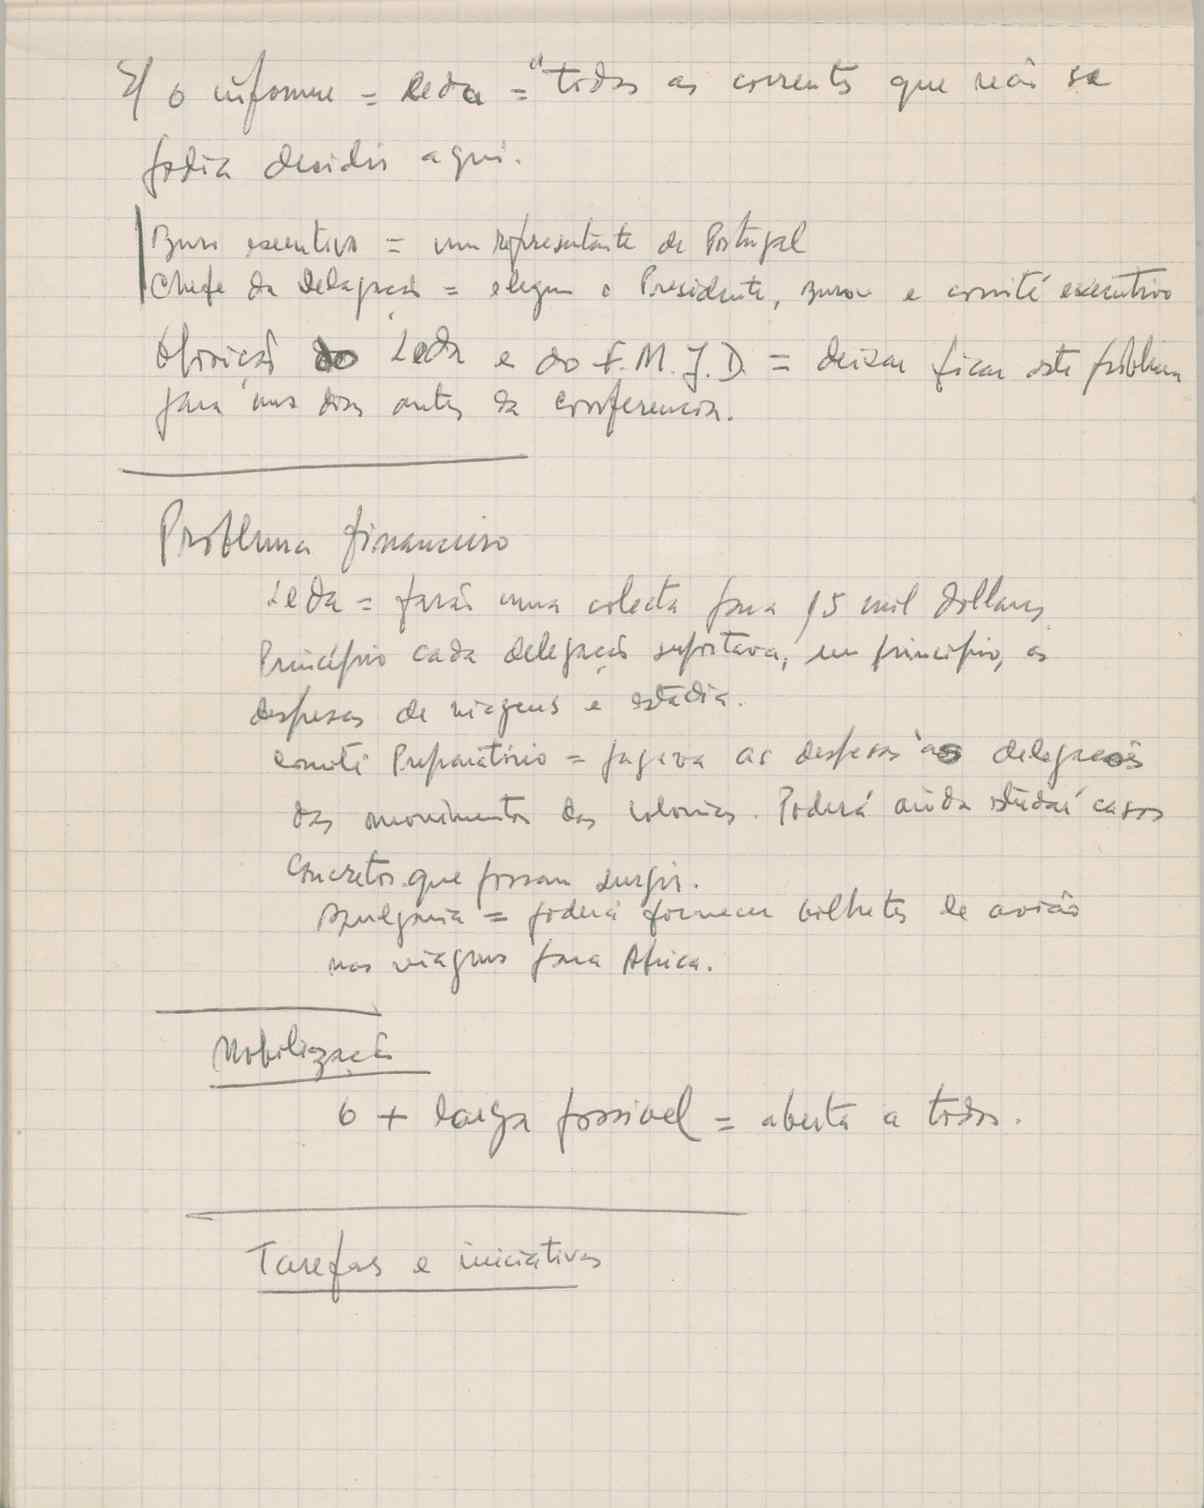 s/ o informe = Leda = "todas as correntes que não se
podia decidir aqui.
Buro executivo = um representante de Portugal
Chefe da Delegação = elegem o Presidente, Buro e comité executivo
Opinião do Leda e do F.M.J.D. = deixar ficar este problema
para uns dias antes da conferencia.
Problema financeiro
Leda = farão uma colecta para 15 mil dollars
Princípio cada delegação suportava, em princípio, as
despesas de viagens e estadia.
Comité Preparatório = pagava as despesas às delegações
dos movimentos das colonias. Poderá ainda estudar casos
concretos que possam surgir.
Bulgaria = poderá fornecer bilhetes de avião
nas viagens para Africa.
Mobilização
O + larga possivel = aberta a todos.
Tarefas e iniciativas